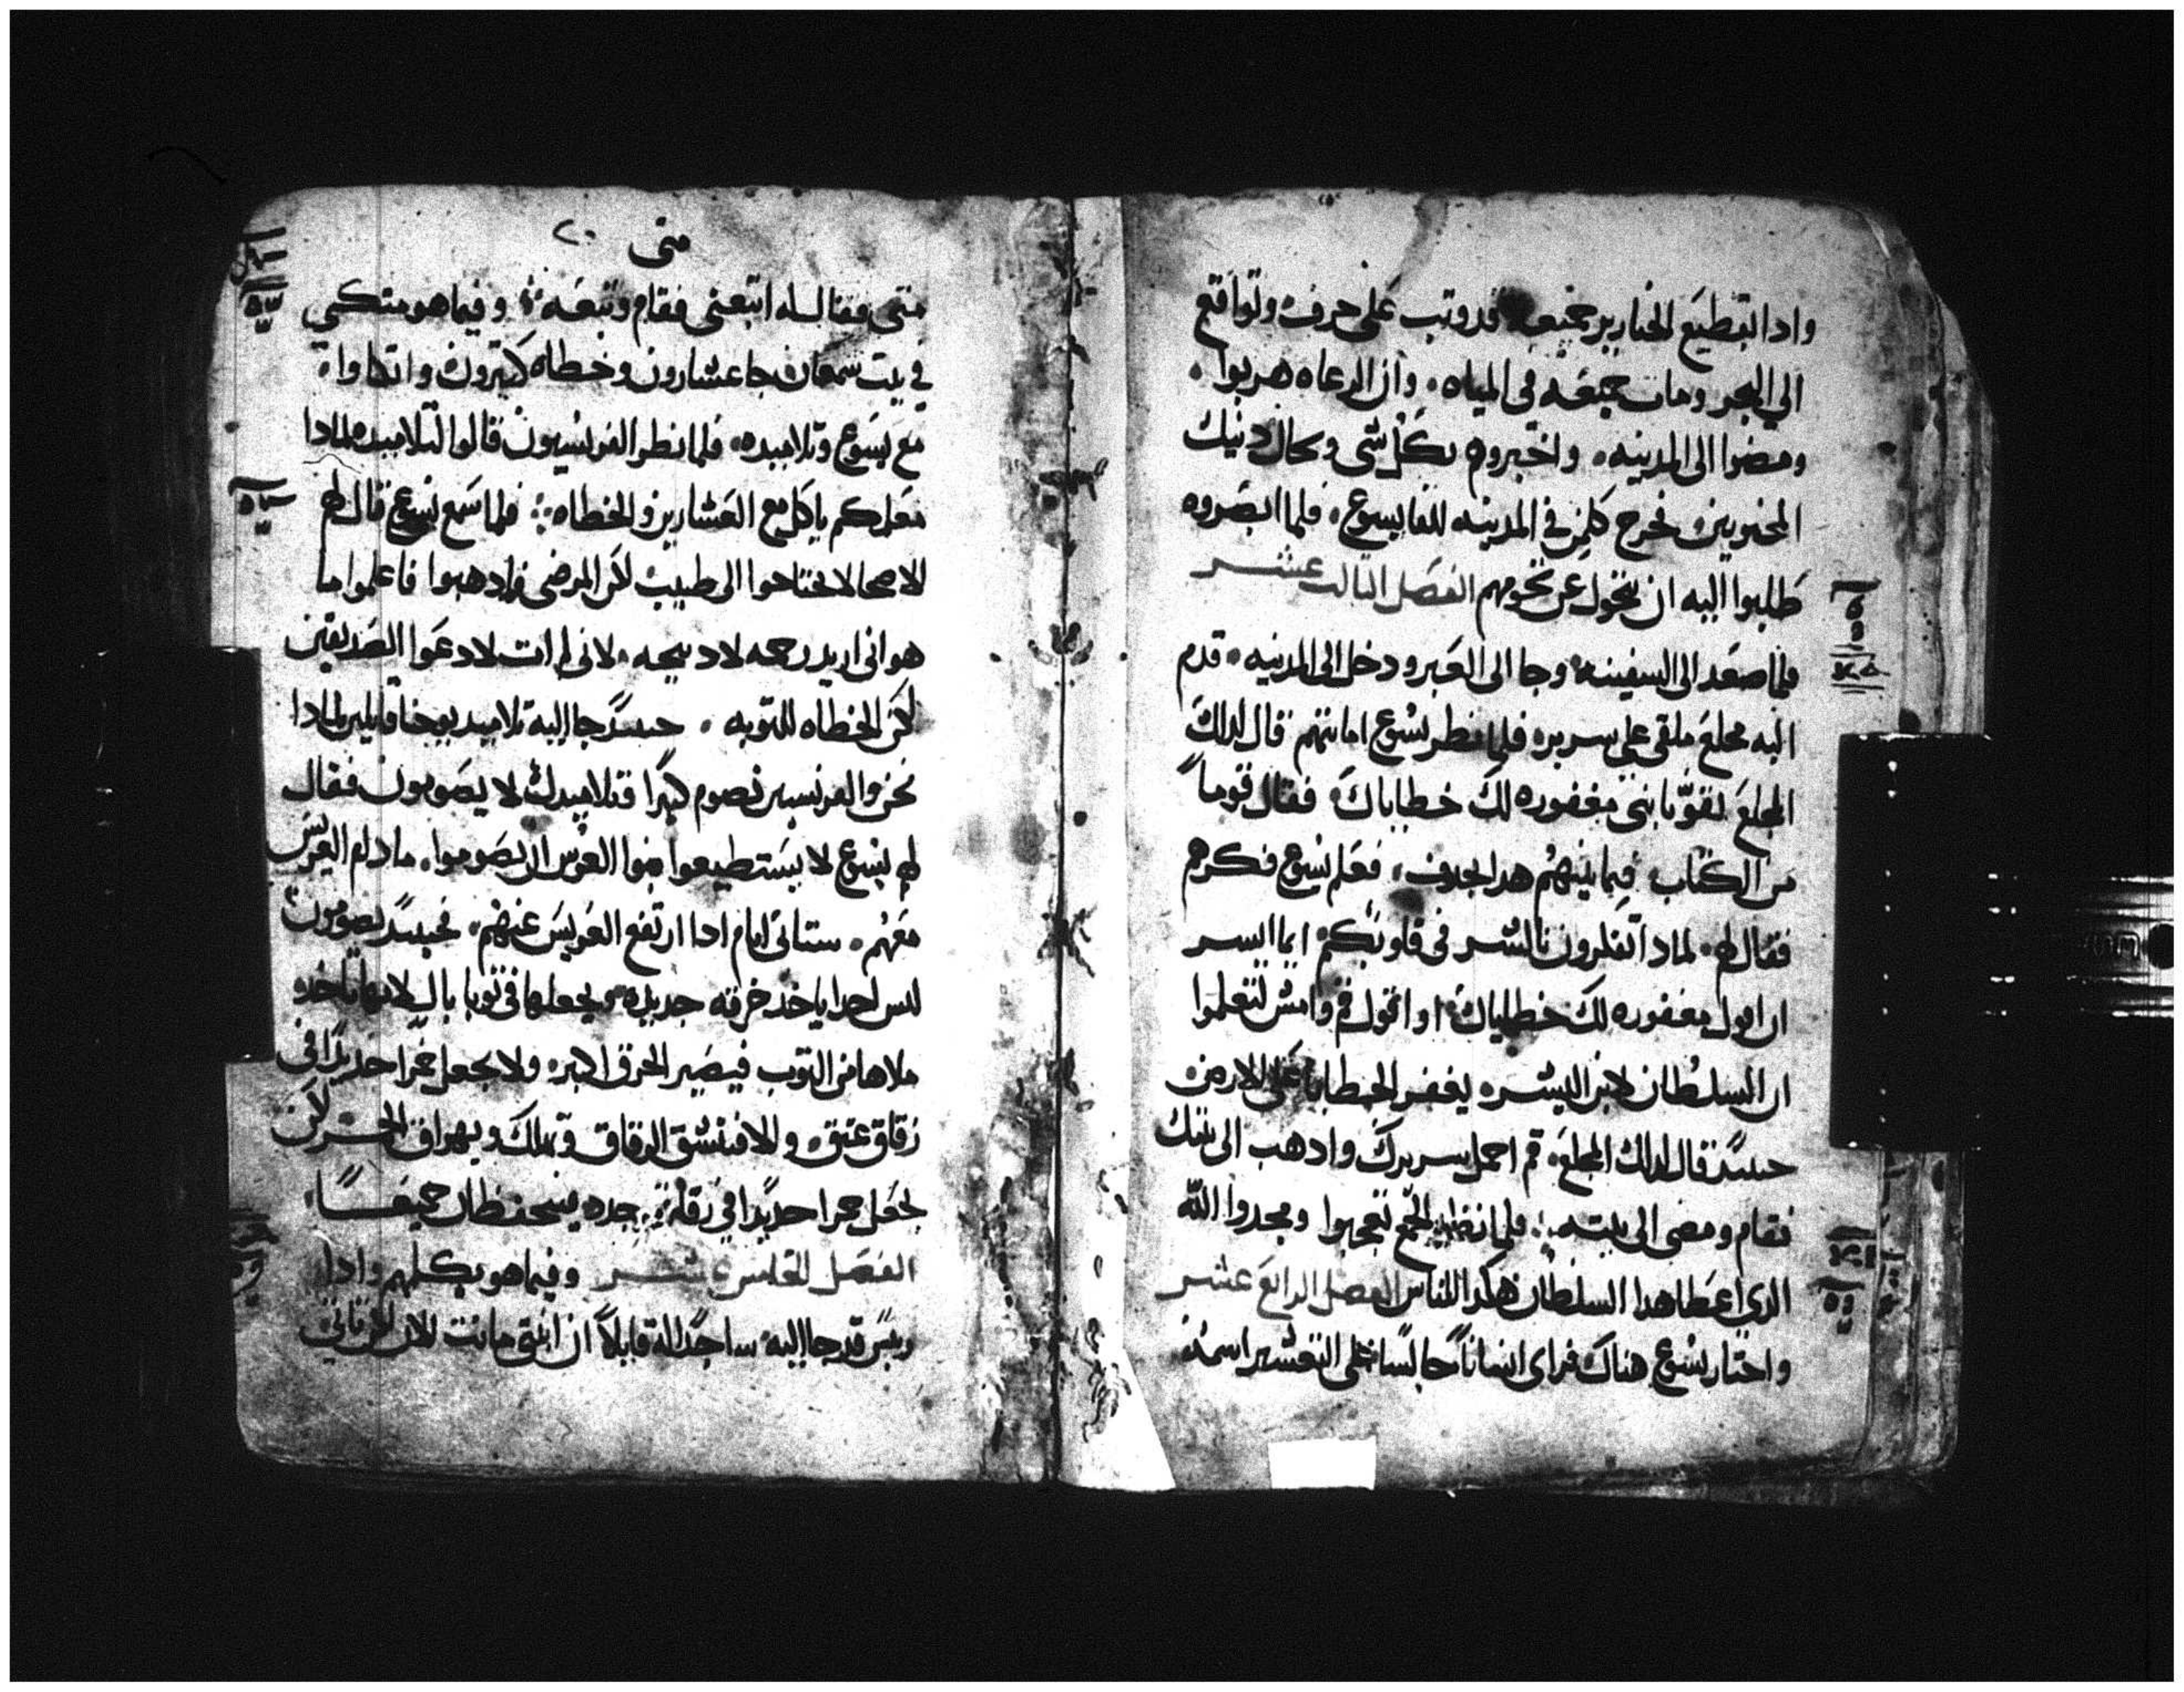 وادا بقطيع الخنازير جميعه قد وتب على جرف وتواقع
الي البحر ومات جميعه في المياه. وان الرعاه هربوا.
ومضوا الى المدينه. واخبروهم بكل شي وكال دنيك
المجنونين. فخرج كلمن في المدينه للقا يسوع. فلما ابصروه
طلبوا اليه ان يتحول عن تخومهم الفصل التالت عشر
فلما صعد الى السفينه وجا الى العبر ودخل الى المدينه. قدم
اليه مخلع ملقى على سرير. فلما نظر يسوع امانتهم قال لدلك
المخلع تقوّ يا بني مغفوره لك خطاياك. فقال قوماً
من الكتاب فيما بينهم هدا يجدف. فعلم يسوع فكرهم
فقال لهم. لمادا تفكرون بالشر في قلوبكم ايما ايسر
ان اقول مغفوره لك خطاياك. او اقول قم وامش لتعلموا
ان السلطان لابن البشر. يغفر الخطايا على الارض
حينيدٍ قال لدلك المخلع. قم احمل سريرك وادهب الى بيتك
فقام ومضى الى بيته. فلما نظر الجمع تعجبوا ومجدوا الله
الدي اعطا هدا السلطان هكدا للناس الفصل الرابع عشر
واجتاز يسوع هناك فراى انساناً جالساً على التعشير اسمه
متى ٢٠
متى فقال له اتبعني فقام وتبعه. وفيما هو متكي
في بيت سمعان جا عشارون وخطاه كتيرون واتكاوا.
مع يسوع وتلاميده. فلما نظر الفريسيون قالوا لتلاميده لمادا
معلمكم ياكل مع العشارين والخطاه. فلما سمع يسوع قال لهم
الاصحا لا يحتاجوا الى طبيب لكن المرضى فادهبوا فاعلموا ما
هو اني اريد رحمه لا دبيحه. لاني لم ات لادعوا الصديقين
لكن الخطاه للتوبه. حينيدٍ جا اليه تلاميد يوحنا قايلين لمادا
نحن والفريسيين نصوم كثيرًا وتلاميدك لا يصومون فقال
لهم يسوع لا يستطيعوا بنوا العرس ان يصوموا. مادام العريس
معهم. ستاتي ايام ادا ارتفع العريس عنهم. فحينيدٍ يصومون
ليس احدا ياخد خرقه جديده ويجعلها في توبا بال لانها تاخد
ملاها من التوب فيصير الخرق اكبر. ولا يجعل خمرا جديدًا في
زقاق عتق والا فتنشق الزقاق وتهلك ويهراق الخمر لكن
يجعل خمرا جديدًا في زقاق جدد فينحفظان جميعـًا
الفصل الخامس عشر وفيما هو يكلمهم وادا
ريس قد جا اليه ساجدًا له قايلاً ان ابنتي ماتت الان لكن تاتي